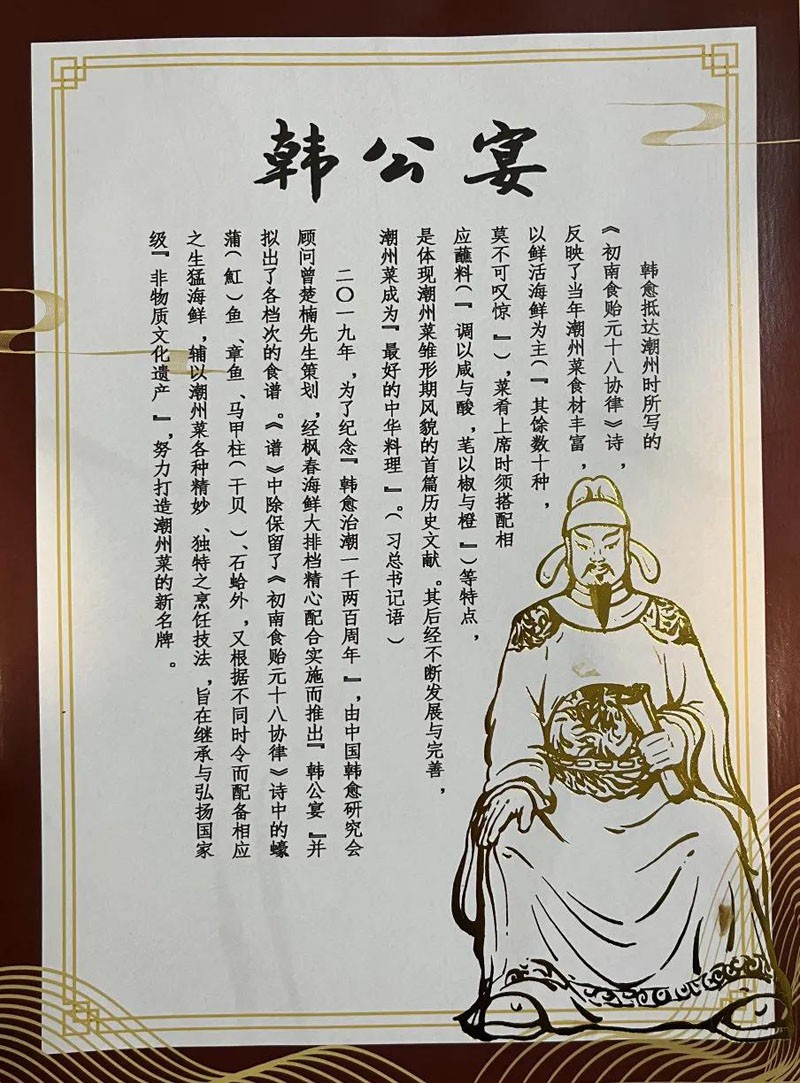 韩公宴
韩愈抵达潮州时所写的
《初南食贻元十八协律》诗，
反映了当年潮州菜食材丰富，
以鲜活海鲜为主（『其馀数十种，
莫不可叹惊』），菜肴上席时须搭配相
应蘸料（『调以咸与酸，芼以椒与橙』）等特点，
是体现潮州菜雏形期风貌的首篇历史文献。其后经不断发展与完善，
潮州菜成为『最好的中华料理』。（习总书记语）
二〇一九年，为了纪念『韩愈治潮一千两百周年』，由中国韩愈研究会
顾问曾楚楠先生策划，经枫春海鲜大排档精心配合实施而推出『韩公宴』并
拟出了各档次的食谱。《谱》中除保留了《初南食贻元十八协律》诗中的蠔
蒲（魟）鱼、章鱼、马甲柱（干贝）、石蛤外，又根据不同时令而配备相应
之生猛海鲜，辅以潮州菜各种精妙、独特之烹饪技法，旨在继承与弘扬国家
级『非物质文化遗产』，努力打造潮州菜的新名牌。